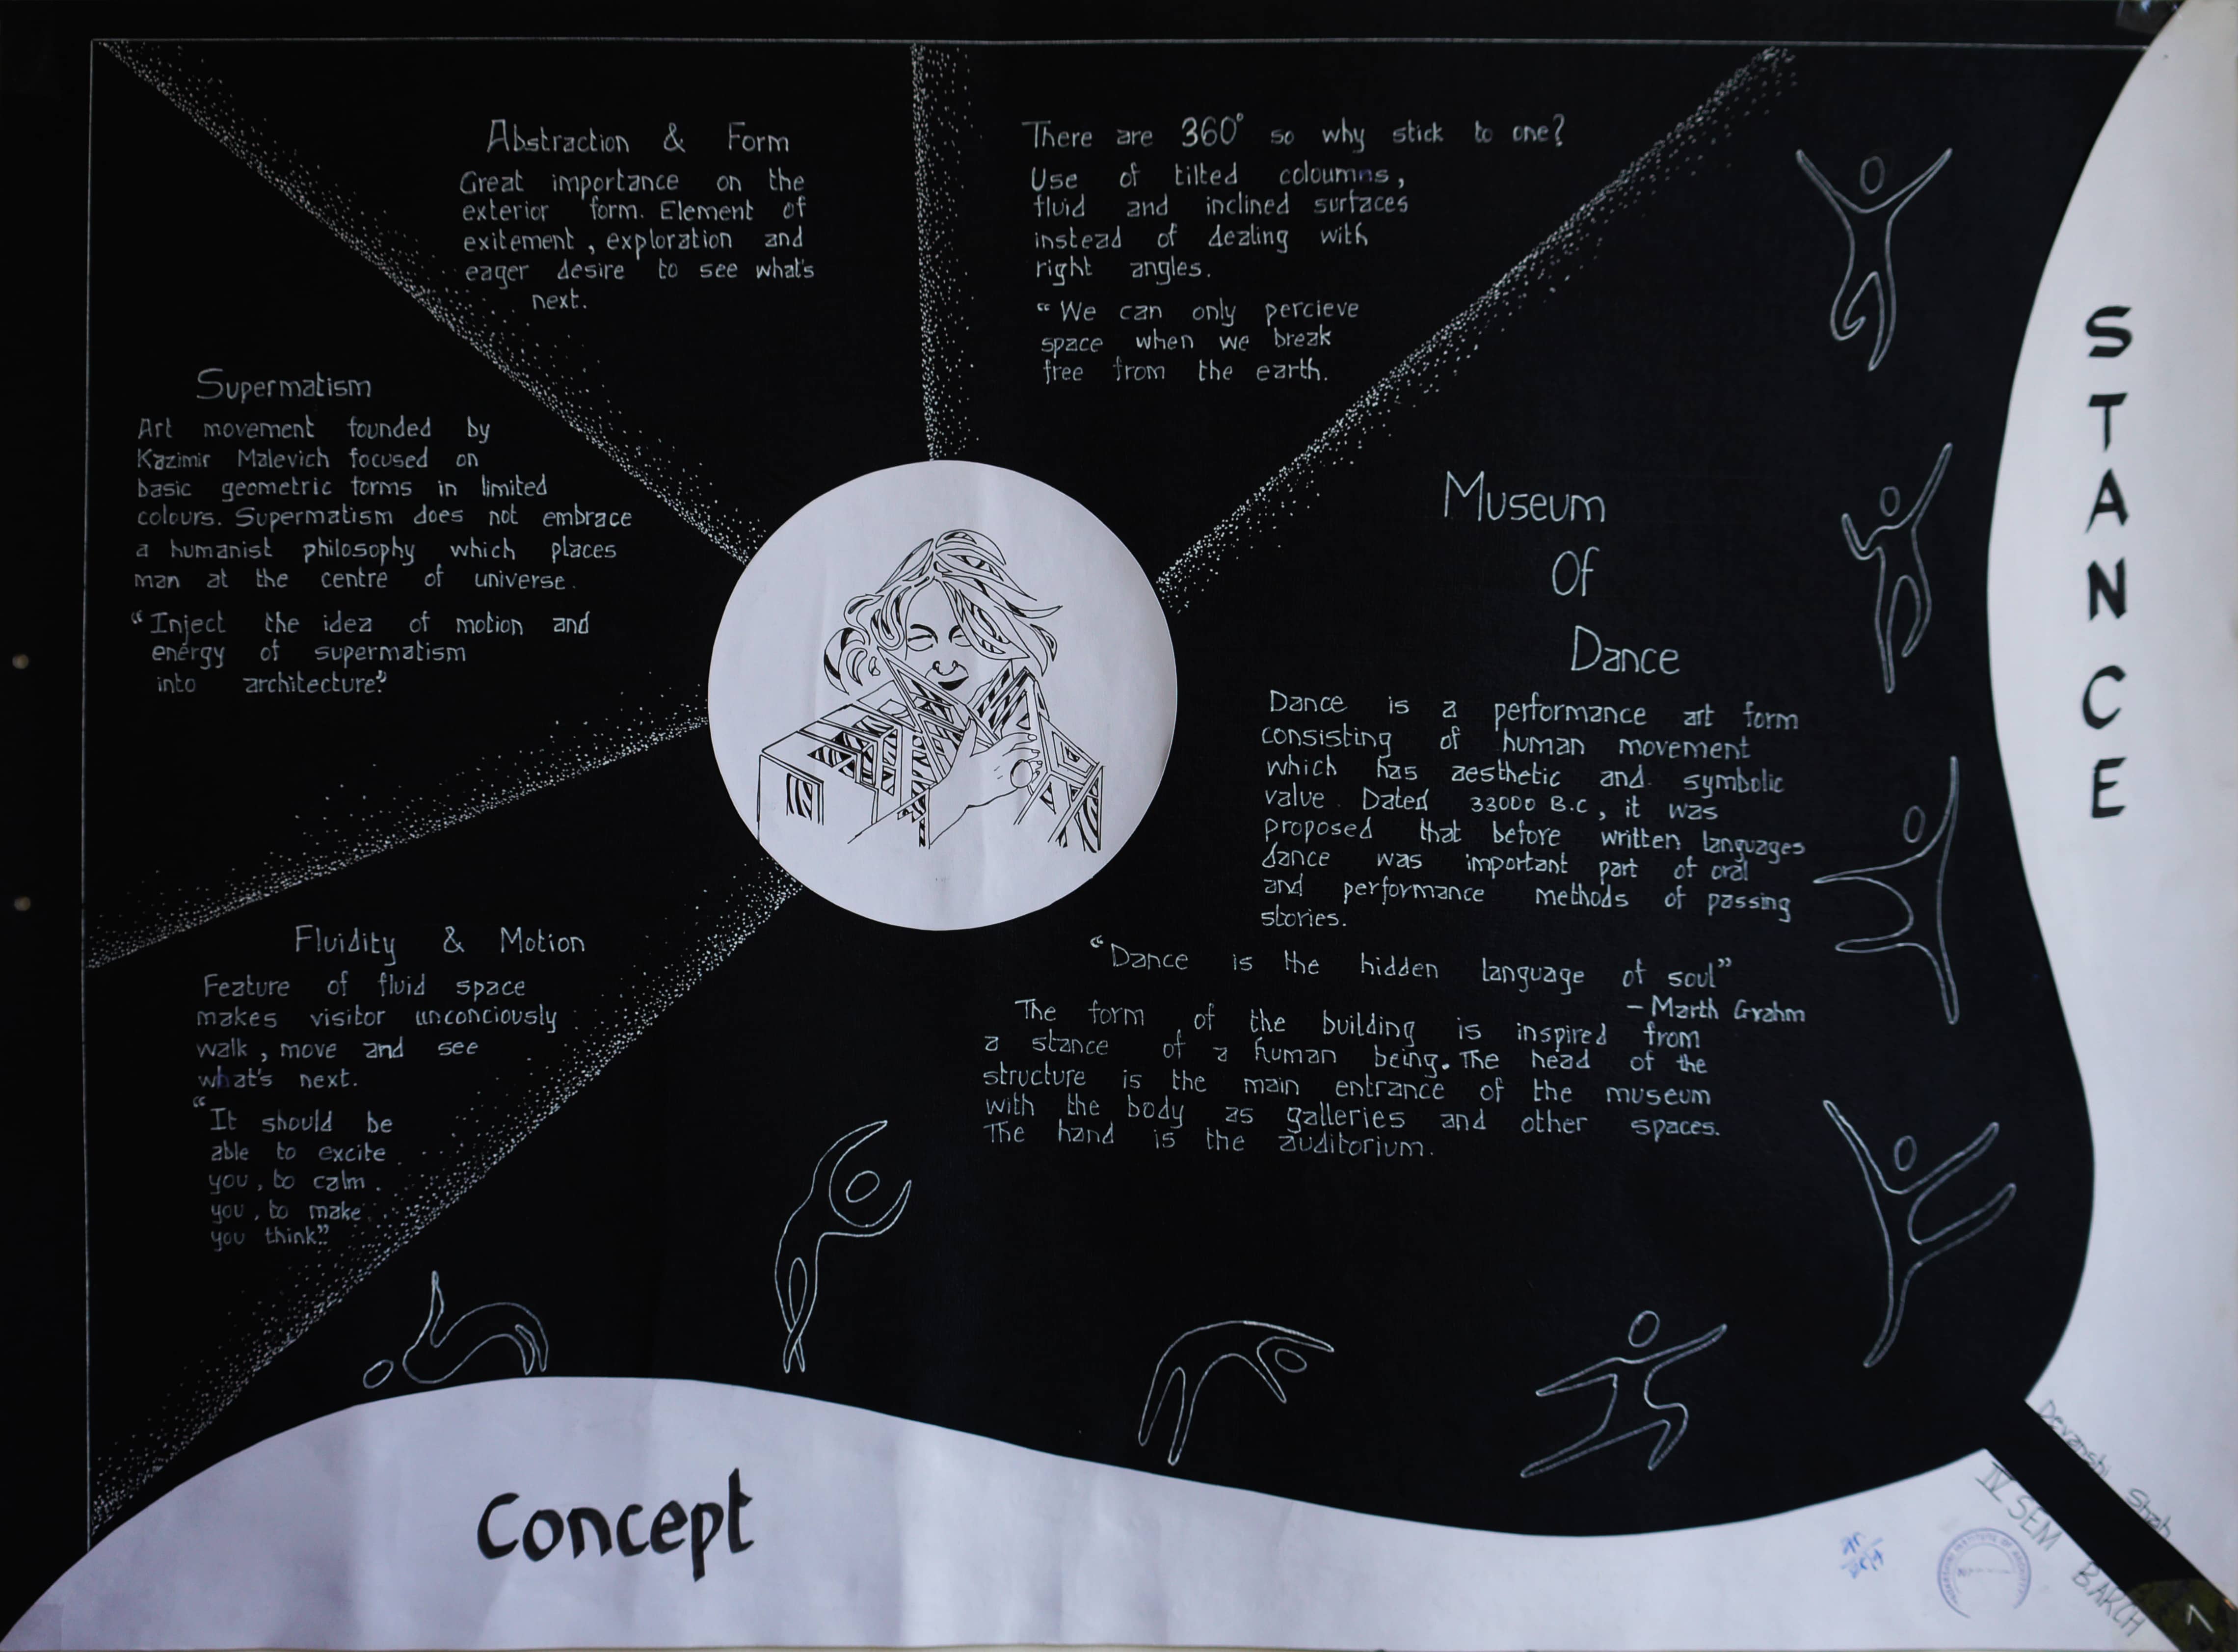 Abstraction & Form
Great importance on the
exterior form. Element of
exitement, exploration and
eager desire to see what's
next.
There are 360° so why stick to one?
Use of tilted coloumns,
fluid and inclined surfaces
instead of dealing with
right angles.
“We can only percieve
space when we break
free from the earth.
Supermatism
Art movement founded by
Kazimir Malevich focused on
basic geometric forms in limited
colours. Supermatism does not embrace
a humanist philosophy which places
man at the centre of universe.
“Inject the idea of motion and
energy of supermatism
into architecture.”
Fluidity & Motion
Feature of fluid space
makes visitor unconciously
walk, move and see
what's next.
“It should be
able to excite
you, to calm
you, to make
you think.”
Museum
Of
Dance
Dance is a performance art form
consisting of human movement
which has aesthetic and symbolic
value. Dated 33000 B.C, it was
proposed that before written languages
dance was important part of oral
and performance methods of passing
stories.
“Dance is the hidden language of soul”
- Marth Grahm
The form of the building is inspired from
a stance of a human being. The head of the
structure is the main entrance of the museum
with the body as galleries and other spaces.
The hand is the auditorium.
STANCE
Concept
Devanshi Shah
IV SEM B.ARCH
1